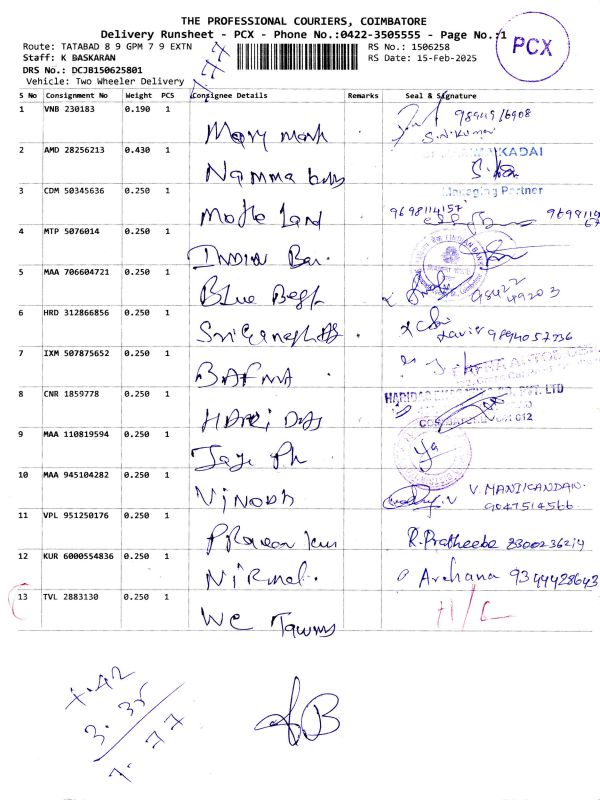 THE PROFESSIONAL COURIERS, COIMBATORE
Delivery Runsheet - PCX - Phone No.:0422-3505555 - Page No.:1
PCX
Route: TATABAD 8 9 GPM 7 9 EXTN
RS No.: 1506258
Staff: K BASKARAN
RS Date: 15-Feb-2025
DRS No.: DCJB150625801
Vehicle: Two Wheeler Delivery
S No Consignment No Weight PCS Consignee Details Remarks Seal & Signature
1 VNB 230183 0.190 1 Mary
9894916908
S. Sivakumar
2 AMD 28256213 0.430 1 Namma
KADAI
Managing Partner
3 CDM 50345636 0.250 1 Land
9698114157
4 MTP 5076014 0.250 1 INDIAN Ban.
INDIAN BANK
5 MAA 706604721 0.250 1 Blue
98422 49203
6 HRD 312866856 0.250 1
9894057336
7 IXM 507875652 0.250 1 BAFNA
8 CNR 1859778 0.250 1 HARI DAS
PVT. LTD
9 MAA 110819594 0.250 1 Jaye Ph
10 MAA 945104282 0.250 1 Vinodh
V. MANIKANDAN.
9047514566
11 VPL 951250176 0.250 1 Praveen kum
R. Pratheeba 8300236214
12 KUR 6000554836 0.250 1 Nirmal.
Archana 9344428643
13 TVL 2883130 0.250 1 We Towns
H/C
4.42
3.35
7.77